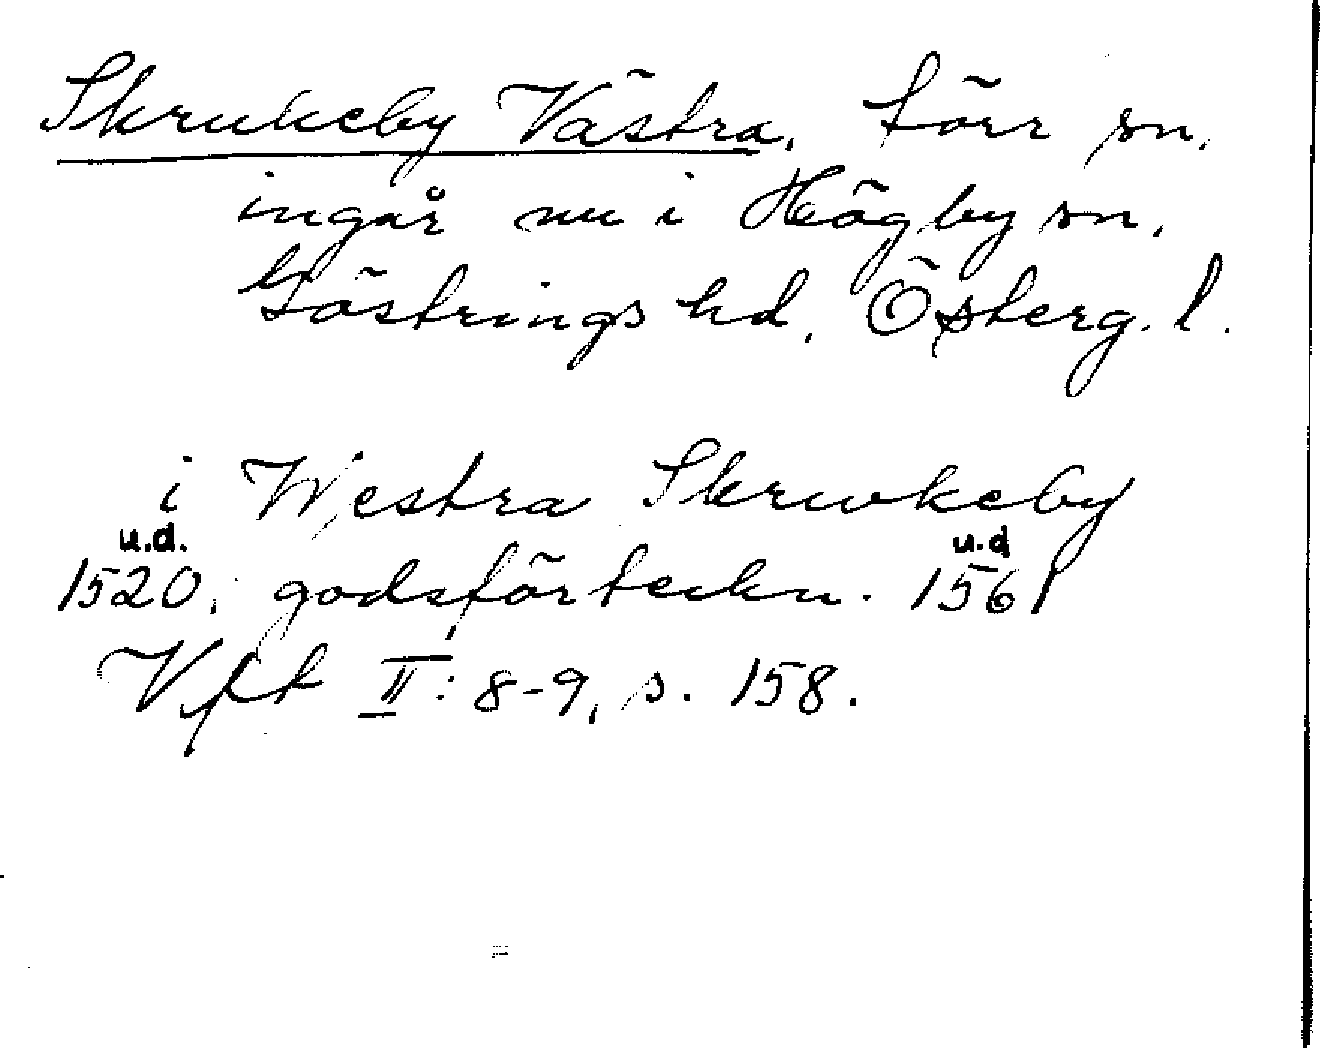 Skrukeby Västra, förr sn,
ingår nu i Högby sn,
Göstrings hd, Österg. l.
i Westra Skruvkeby
u.d. u.d
1520, godsförteckn. 1561
Vfrt II: 8-9, s. 158.